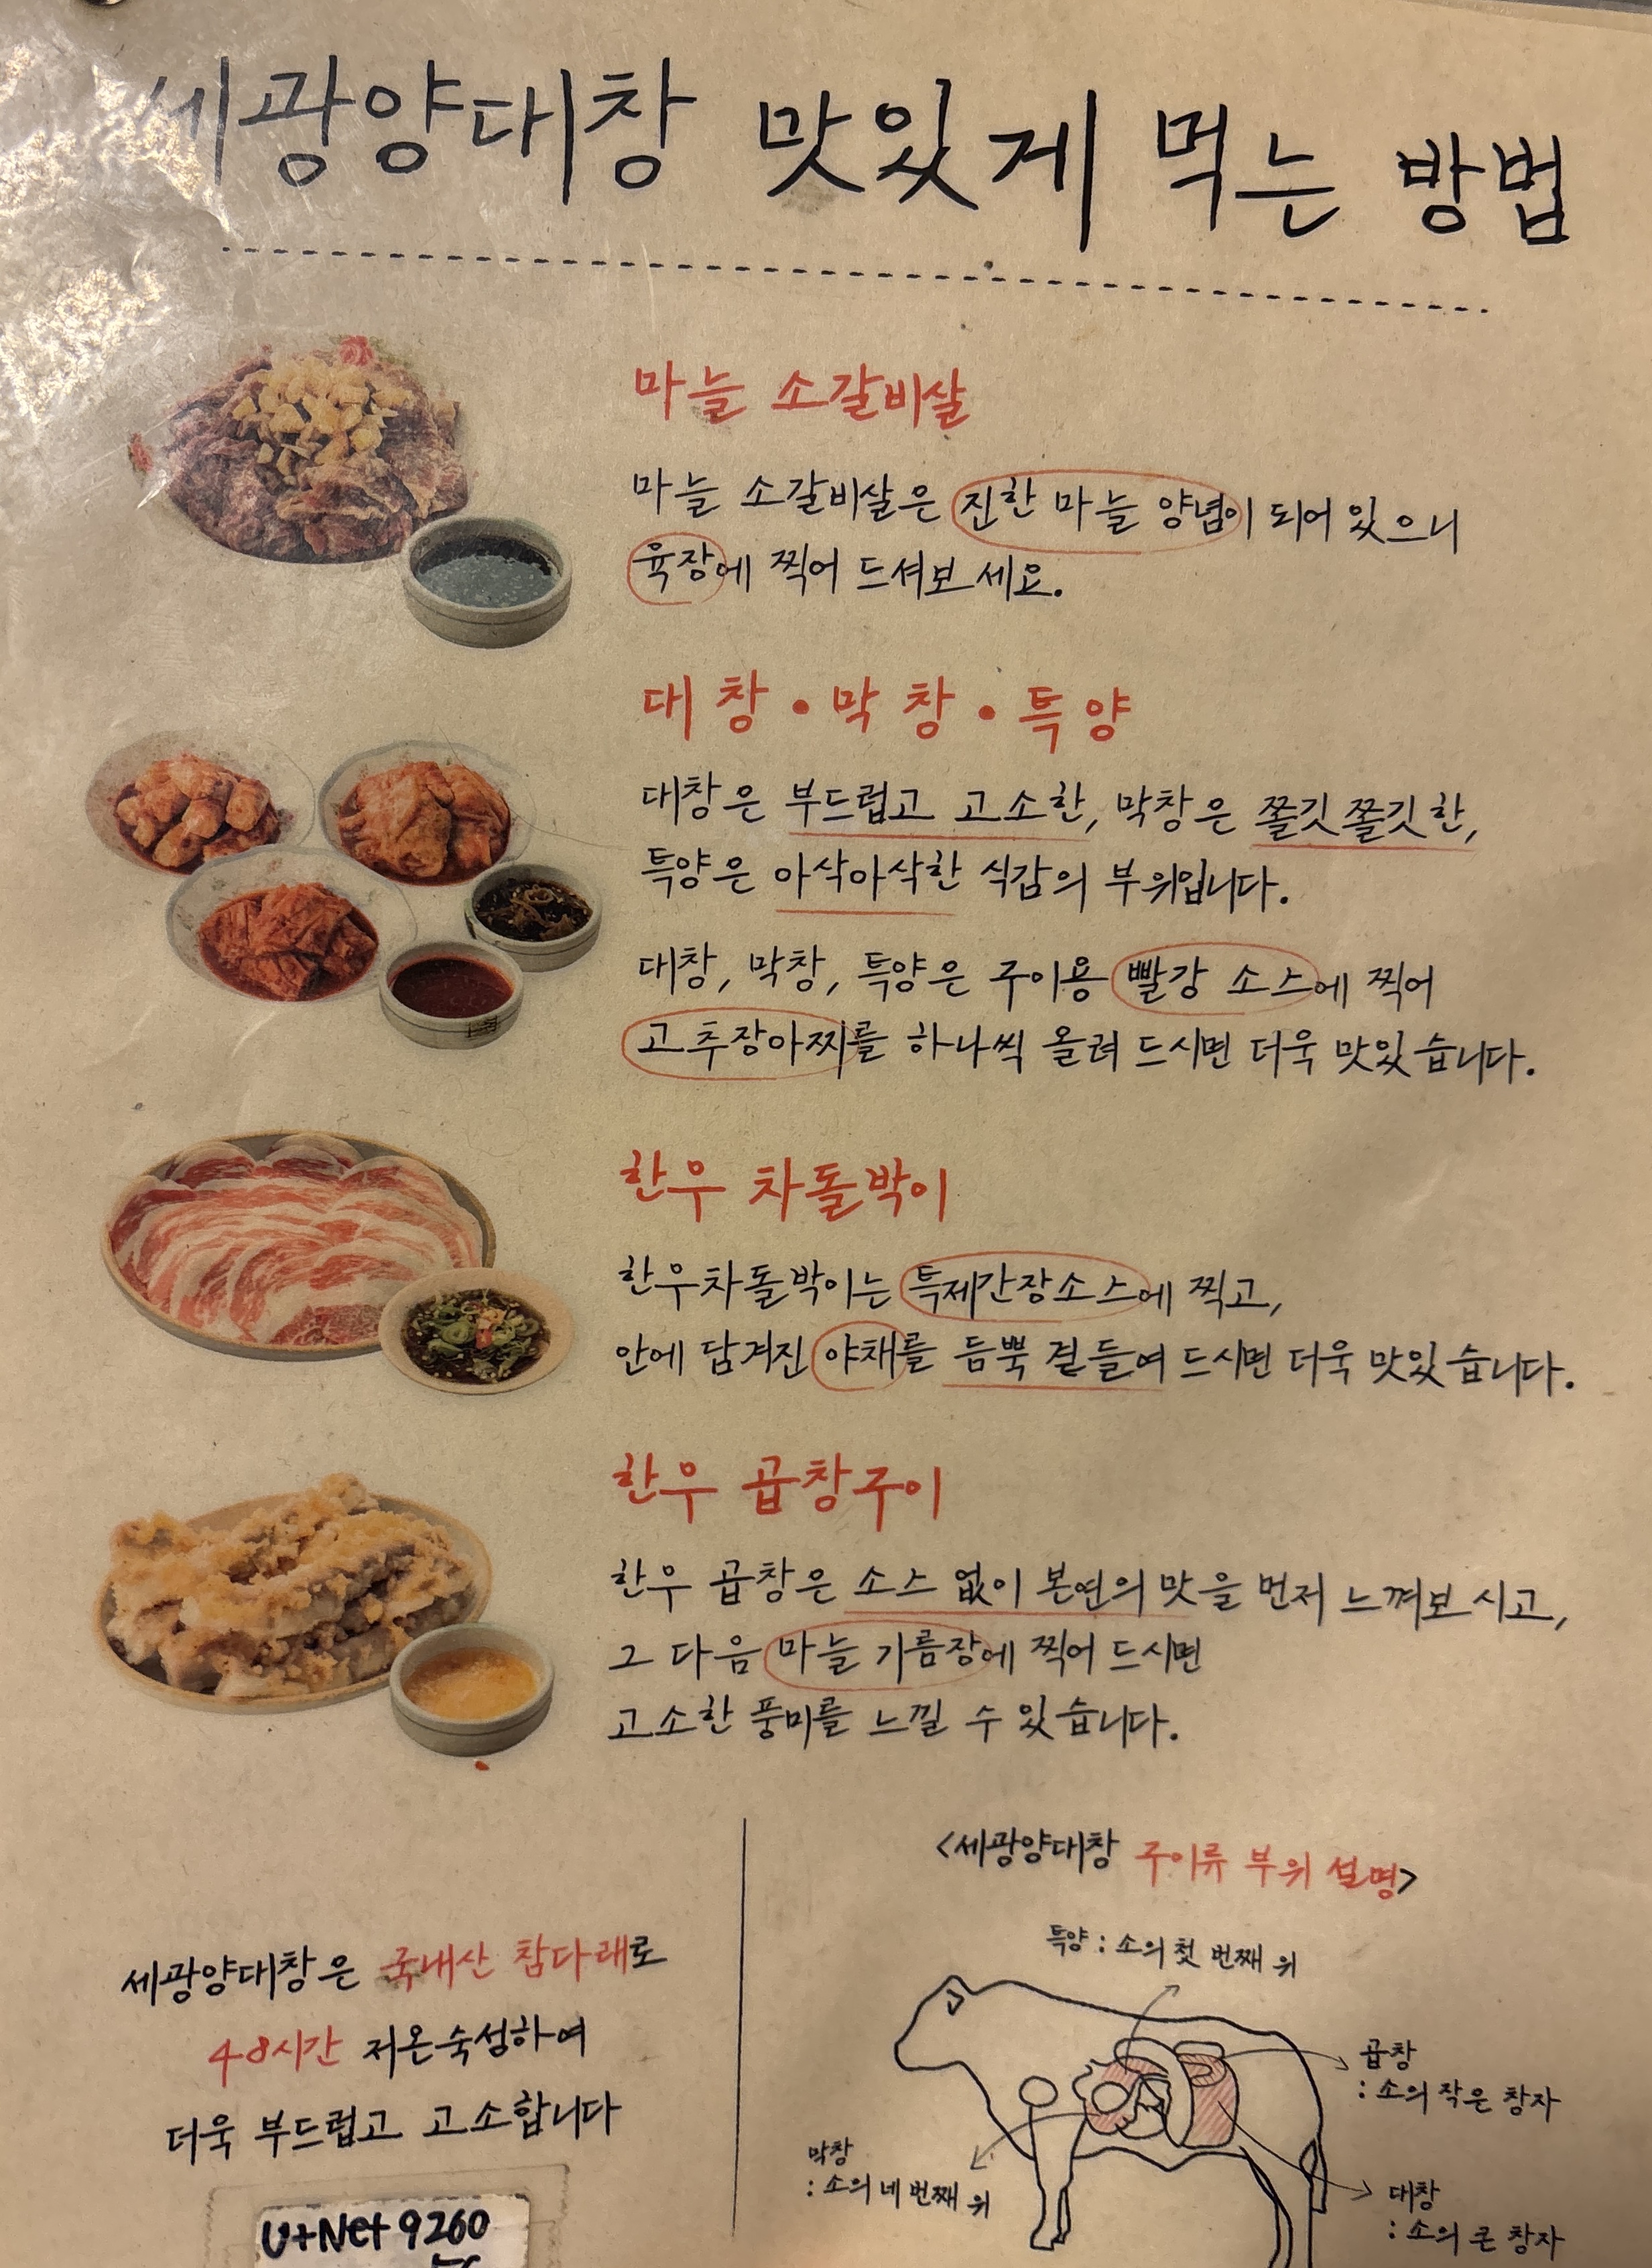 세광양대창 맛있게 먹는 방법
마늘 소갈비살
마늘 소갈비살은 진한 마늘 양념이 되어 있으니
육장에 찍어 드셔보세요.
대창·막창·특양
대창은 부드럽고 고소한, 막창은 쫄깃쫄깃한,
특양은 아삭아삭한 식감의 부위입니다.
대창, 막창, 특양은 구이용 빨강 소스에 찍어
고추장아찌를 하나씩 올려 드시면 더욱 맛있습니다.
한우 차돌박이
한우차돌박이는 특제간장소스에 찍고,
안에 담겨진 야채를 듬뿍 곁들여 드시면 더욱 맛있습니다.
한우 곱창구이
한우 곱창은 소스 없이 본연의 맛을 먼저 느껴보시고,
그 다음 마늘 기름장에 찍어 드시면
고소한 풍미를 느낄 수 있습니다.
세광양대창은 국내산 참다래로
48시간 저온숙성하여
더욱 부드럽고 고소합니다
U+Net 9260
<세광양대창 구이류 부위 설명>
특양 : 소의 첫 번째 위
곱창
: 소의 작은 창자
막창
: 소의 네 번째 위
대창
: 소의 큰 창자